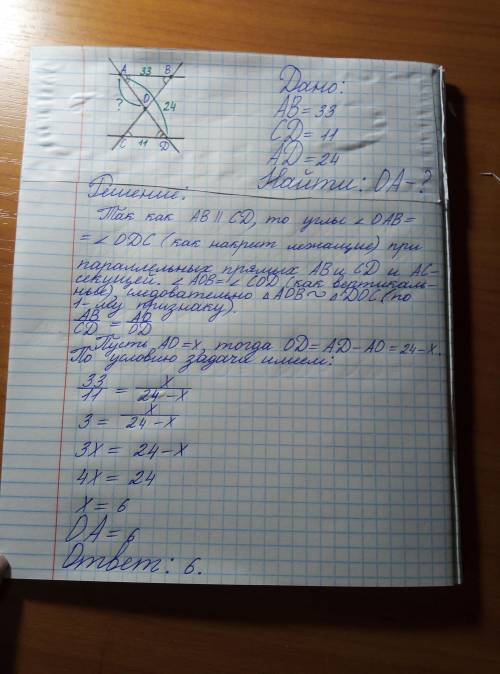 A 33 B
Дано:
AB = 33
? O 24
CD = 11
AD = 24
C 11 D
Найти: OA - ?
Решение:
Так как AB || CD, то углы ∠OAB =
= ∠ODC (как накрит лежащие) при
параллельных прямых AB и CD и AC-
секущей. ∠AOB = ∠COD (как вертикаль-
ные), следовательно △AOB ~ △DOC (по
1-му признаку).
AB/CD = AO/OD
Пусть AO = x, тогда OD = AD - AO = 24 - x.
По условию задачи имеем:
33/11 = x/24 - x
3 = x/24 - x
3x = 24 - x
4x = 24
x = 6
OA = 6
Ответ: 6.